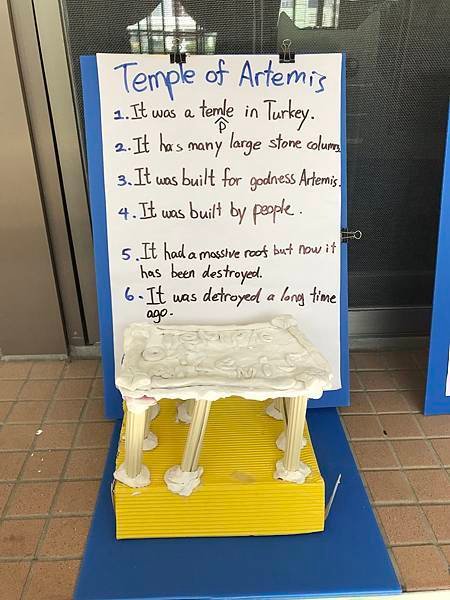 Temple of Artemis
1. It was a temle in Turkey.
p
2. It has many large stone columns
3. It was built for godness Artemis.
4. It was built by people.
5. It had a massive roof but now it
has been destroyed.
6. It was detroyed a long time
ago.